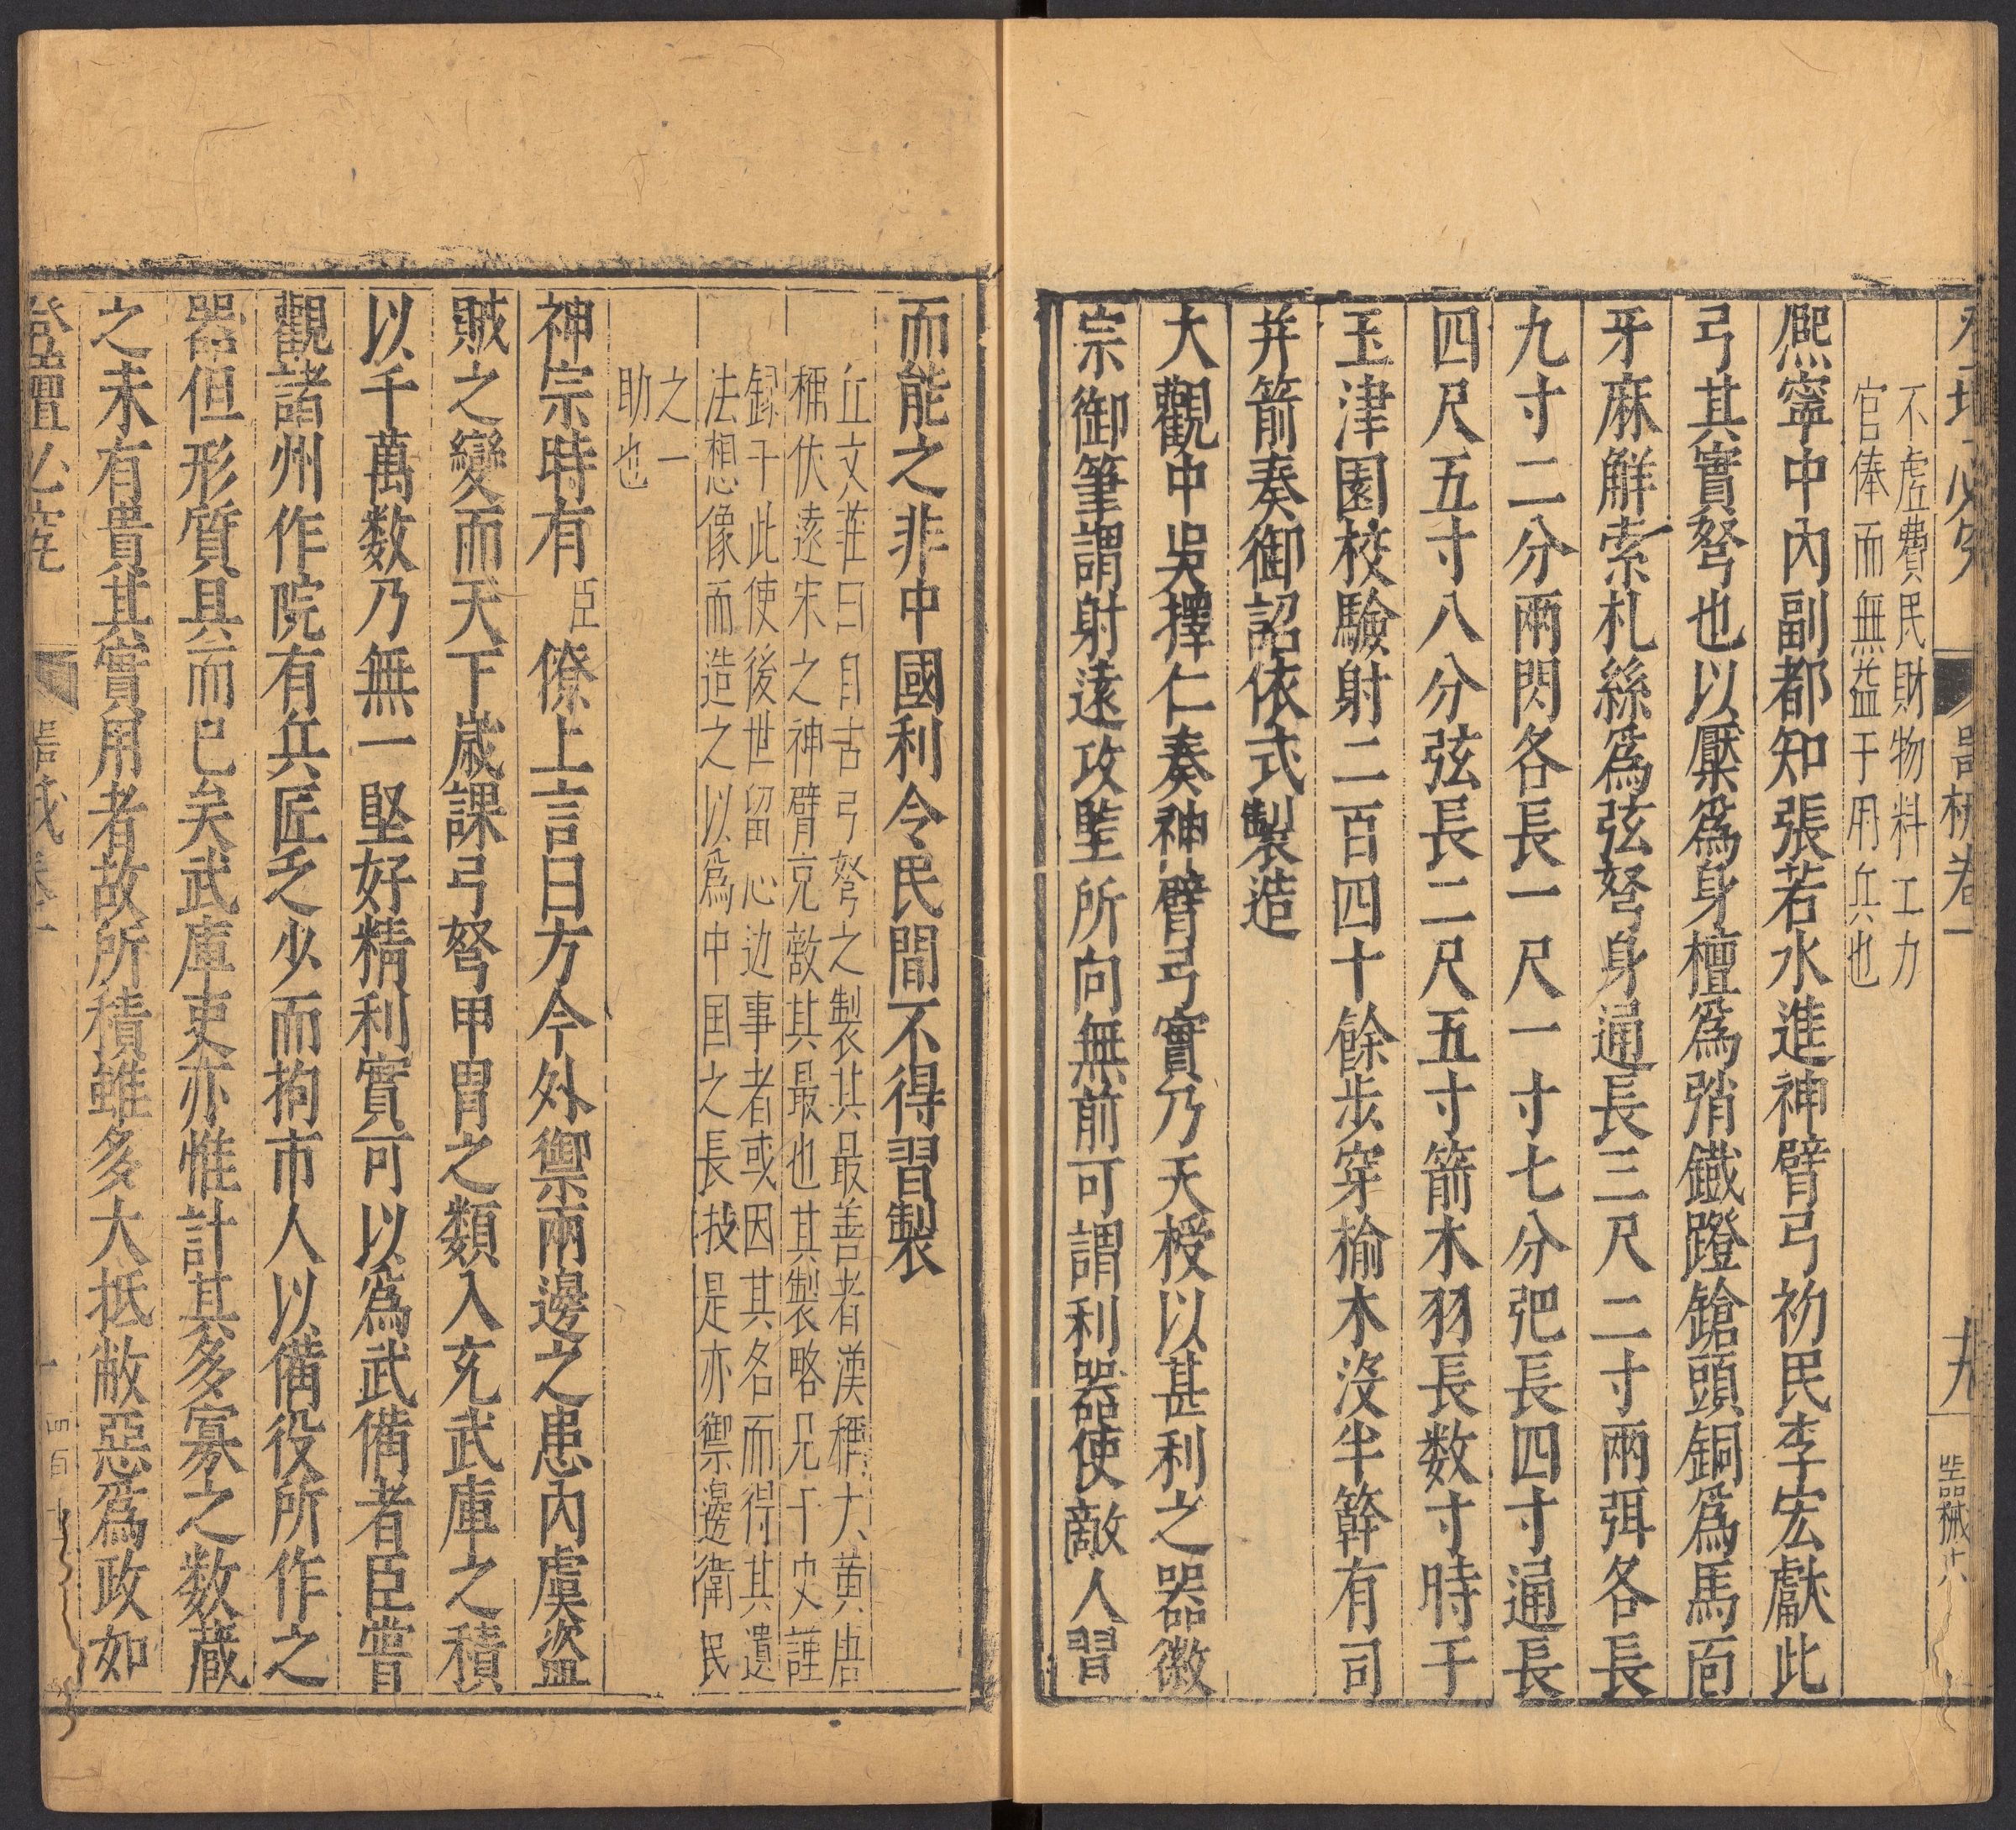 不虛費民財物料工力
官俸而無益于用兵也
熈寧中內副都知張若水進神臂弓初民李宏獻此
弓其實弩也以檿爲身檀爲弰鐵蹬鎗頭銅爲馬面
牙麻觧索札絲爲弦弩身通長三尺二寸兩弭各長
九寸二分兩閃各長一尺一寸七分弝長四寸通長
四尺五寸八分弦長二尺五寸箭木羽長数寸時于
玉津園校驗射二百四十餘步穿榆木沒半簳有司
并箭奏御詔依式製造
大觀中吳擇仁奏神臂弓實乃天授以甚利之器徽
宗御筆謂射遠攻堅所向無前可謂利器使敵人習
而能之非中國利令民間不得習製
丘文莊曰自古弓弩之製其最善者漢稱大黄唐
稱伏遠宋之神臂克敵其最也其製略見于史謹
錄于此使後世留心边事者或因其名而得其遺
法想像而造之以爲中国之長技是亦禦邊衛民
之一
助也
神宗時有臣僚上言曰方今外禦兩邊之患內虞盜
賊之變而天下歲課弓弩甲胄之類入充武庫之積
以千萬数乃無一堅好精利實可以爲武備者臣嘗
觀諸州作院有兵匠乏少而拘市人以備役所作之
器但形質具而已矣武庫吏亦惟計其多寡之数蔵
之未有貴其實用者故所積雖多大抵敝惡爲政如
登壇必究
器械卷一